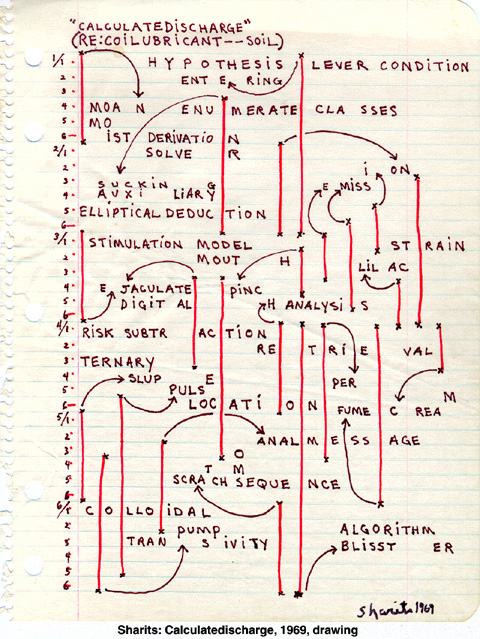 "CALCULATEDISCHARGE"
(RE:COILUBRICANT--SOIL)
1/1 HYPOTHESIS LEVER CONDITION
2 ENT E RING
3
4 MOA N ENU MERATE CLA SSES
5 MO
6 IST DERIVATIO N
2/1 SOLVE R
2 i ON
3 SUCKIN G E MISS
4 AUXI LIARY
5 ELLIPTICAL DEDUC TION
6
3/1 STIMULATION MODEL S T RAIN
2 MOUT H
3 LIL AC
4 E JACULATE PINC
5 DIGIT AL H ANALYSI S
6
4/1 RISK SUBTR ACTION
2 RE T RIE VAL
3 TERNARY
4 SLUP E PER
5 PULS M
6 LOCATi O N FUME C REA
5/1
2 ANAL MESS AGE
3 O
4 T M
5 SCRA CH SEQUE NCE
6
6/1 C OLLOIDAL
2 PUMP ALGORITHM
3 TRAN SiVITY BLISST ER
4
5
6
Sharits 1969
Sharits: Calculatedischarge, 1969, drawing